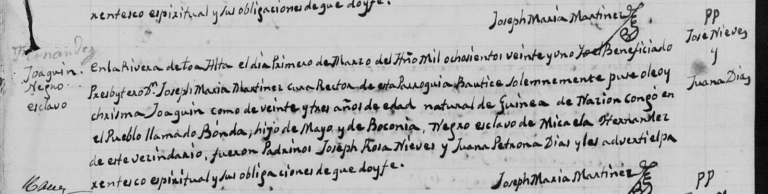 rentesco espiritual y sus obligaciones de que doy fe.
Joseph Maria Martinez
PP
Jose Nieves
y
Juana Dias
Fernandez
Joaquin
Negro
esclavo
En la Rivera de toa Alta el dia Primero de Marzo del Año Mil ochosientos veinte y uno Yo el Beneficiado
Presbytero Dn. Joseph Maria Martinez cura Rector de esta Parroquia Bautice solemnemente puse oleo y
chrisma Joaquin como de veinte y tres años de edad natural de Guinea de Nazion Congo en
el Pueblo llamado Bonda, hijo de Mayo y de Boconia, Negro esclavo de Micaela Hernandez
de este vezindario, fueron Padrinos Joseph Rosa Nieves y Juana Petrona Dias y les adverti el pa
rentesco espiritual y sus obligaciones de que doy fe.
Joseph Maria Martinez
PP